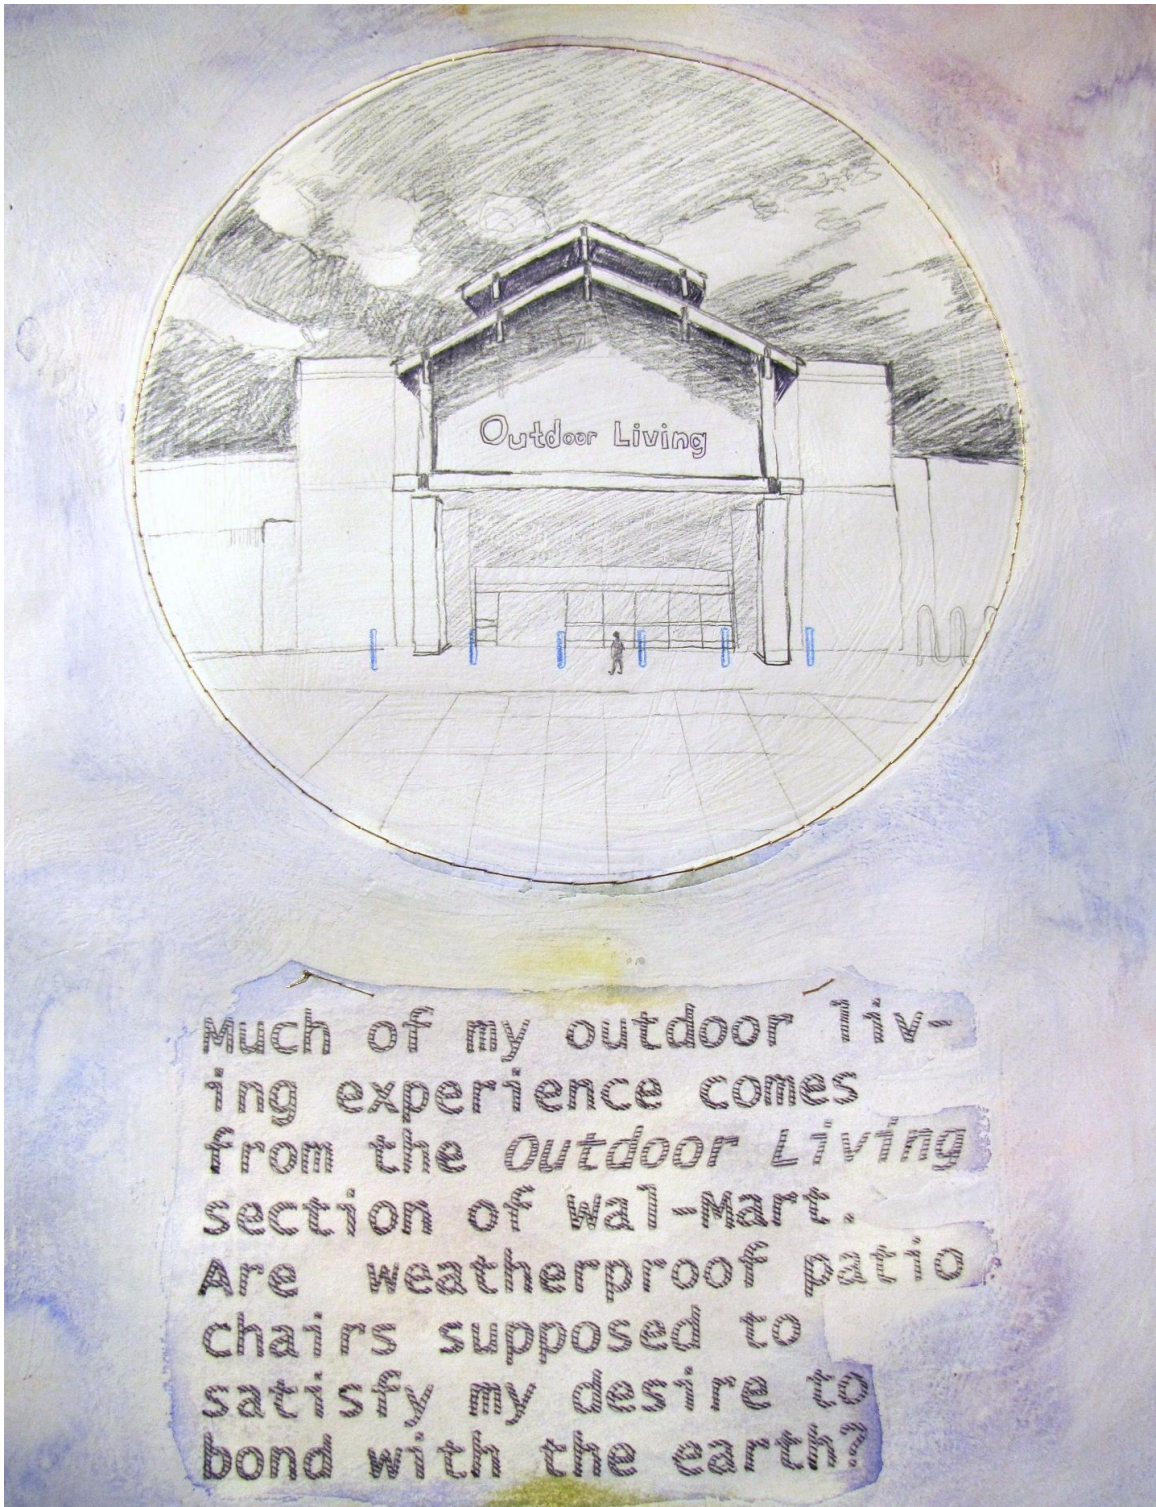 Outdoor Living
Much of my outdoor liv-
ing experience comes
from the Outdoor Living
section of Wal-Mart.
Are weatherproof patio
chairs supposed to
satisfy my desire to
bond with the earth?